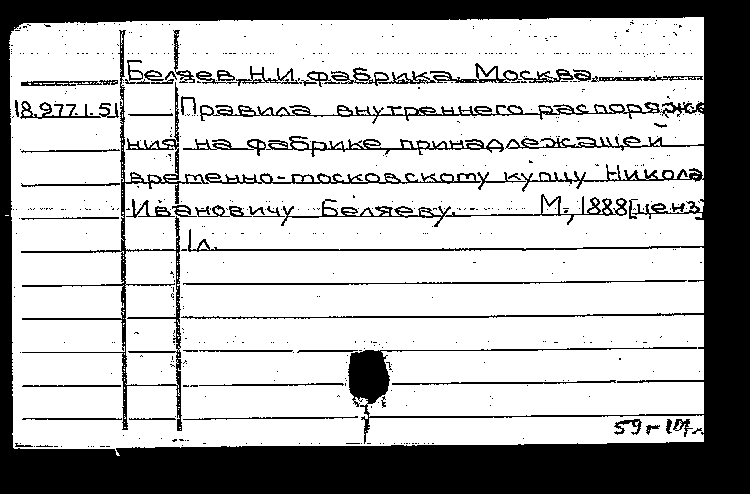 Беляев, Н.И. фабрика. Москва.
18.977.1.51 Правила внутреннего распоряже
ния на фабрике, принадлежащей
временно-московскому купцу Никола
Ивановичу Беляеву. М., 1888[ценз]
1 л.